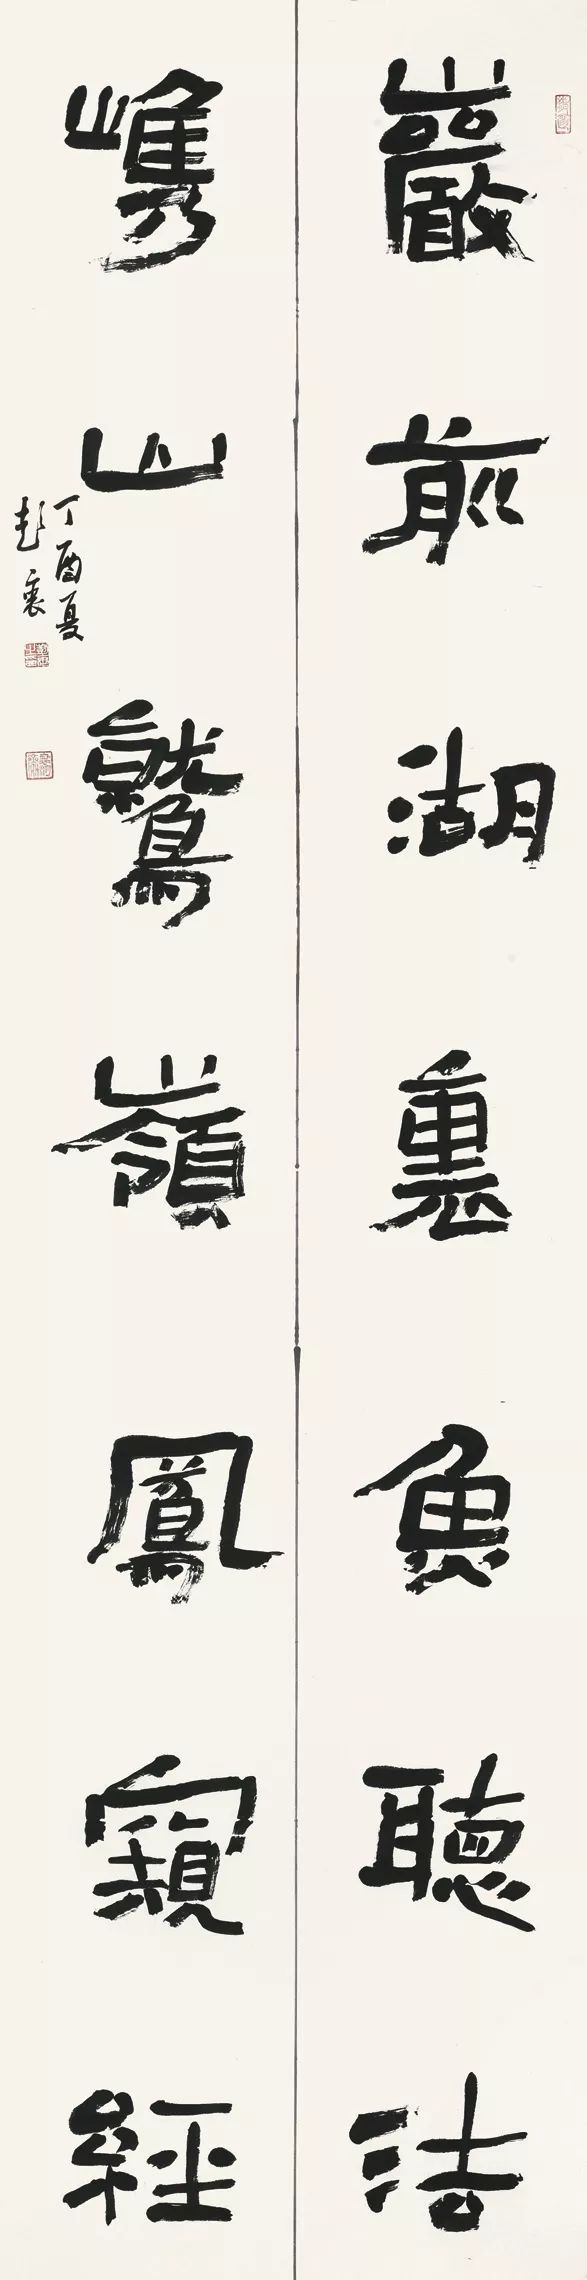 巖前湖裏魚聽法
嶲山鷲嶺鳳窺經
丁酉夏
彭襄